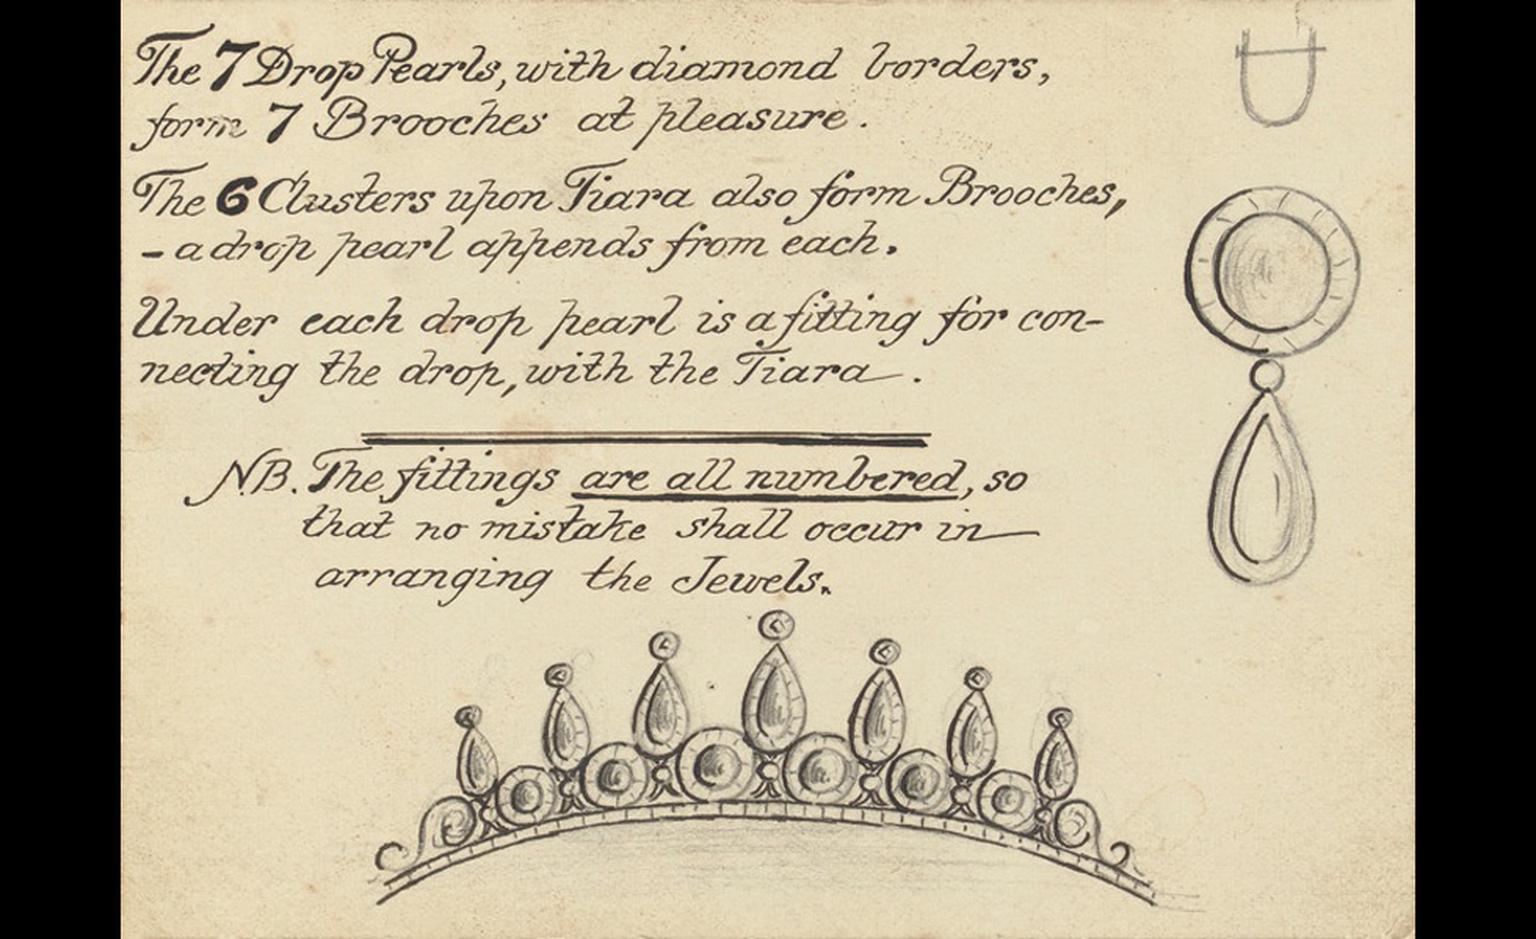 The 7 Drop Pearls, with diamond borders,
form 7 Brooches at pleasure.
The 6 Clusters upon Tiara also form Brooches,
- a drop pearl appends from each.
Under each drop pearl is a fitting for con-
necting the drop, with the Tiara.
N.B. The fittings are all numbered, so
that no mistake shall occur in
arranging the Jewels.